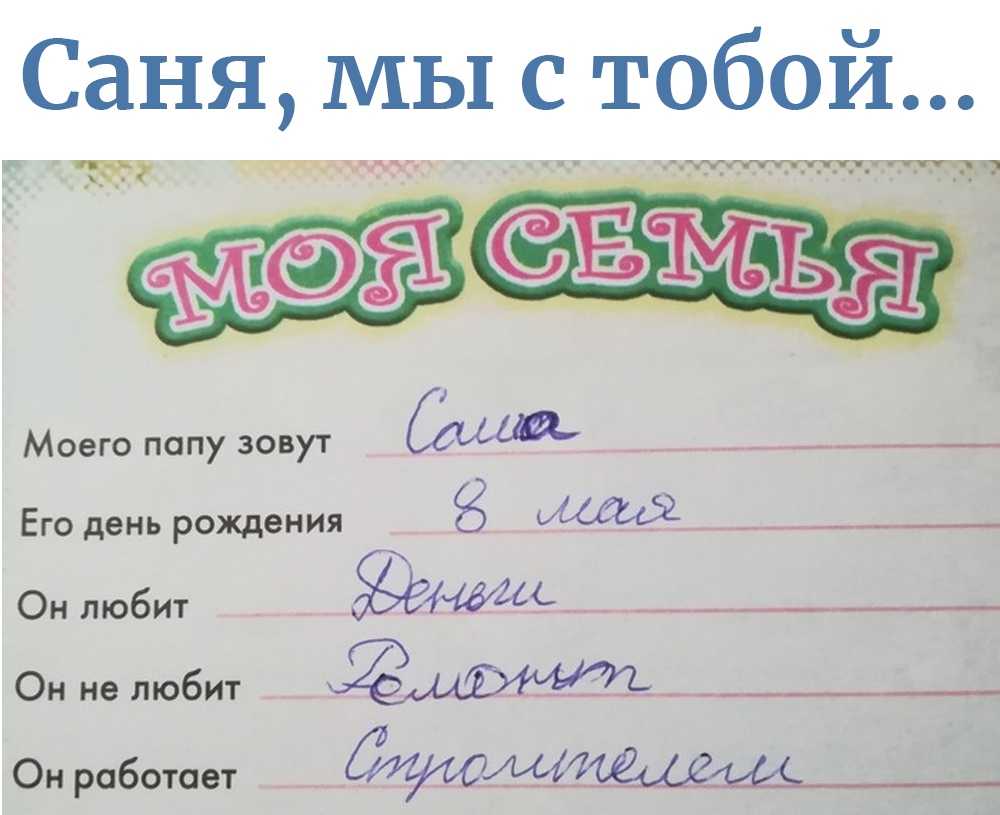 Саня, мы с тобой...
МОЯ СЕМЬЯ
Моего папу зовут Саша
Его день рождения 8 мая
Он любит Деньги
Он не любит Ремонт
Он работает Строителем